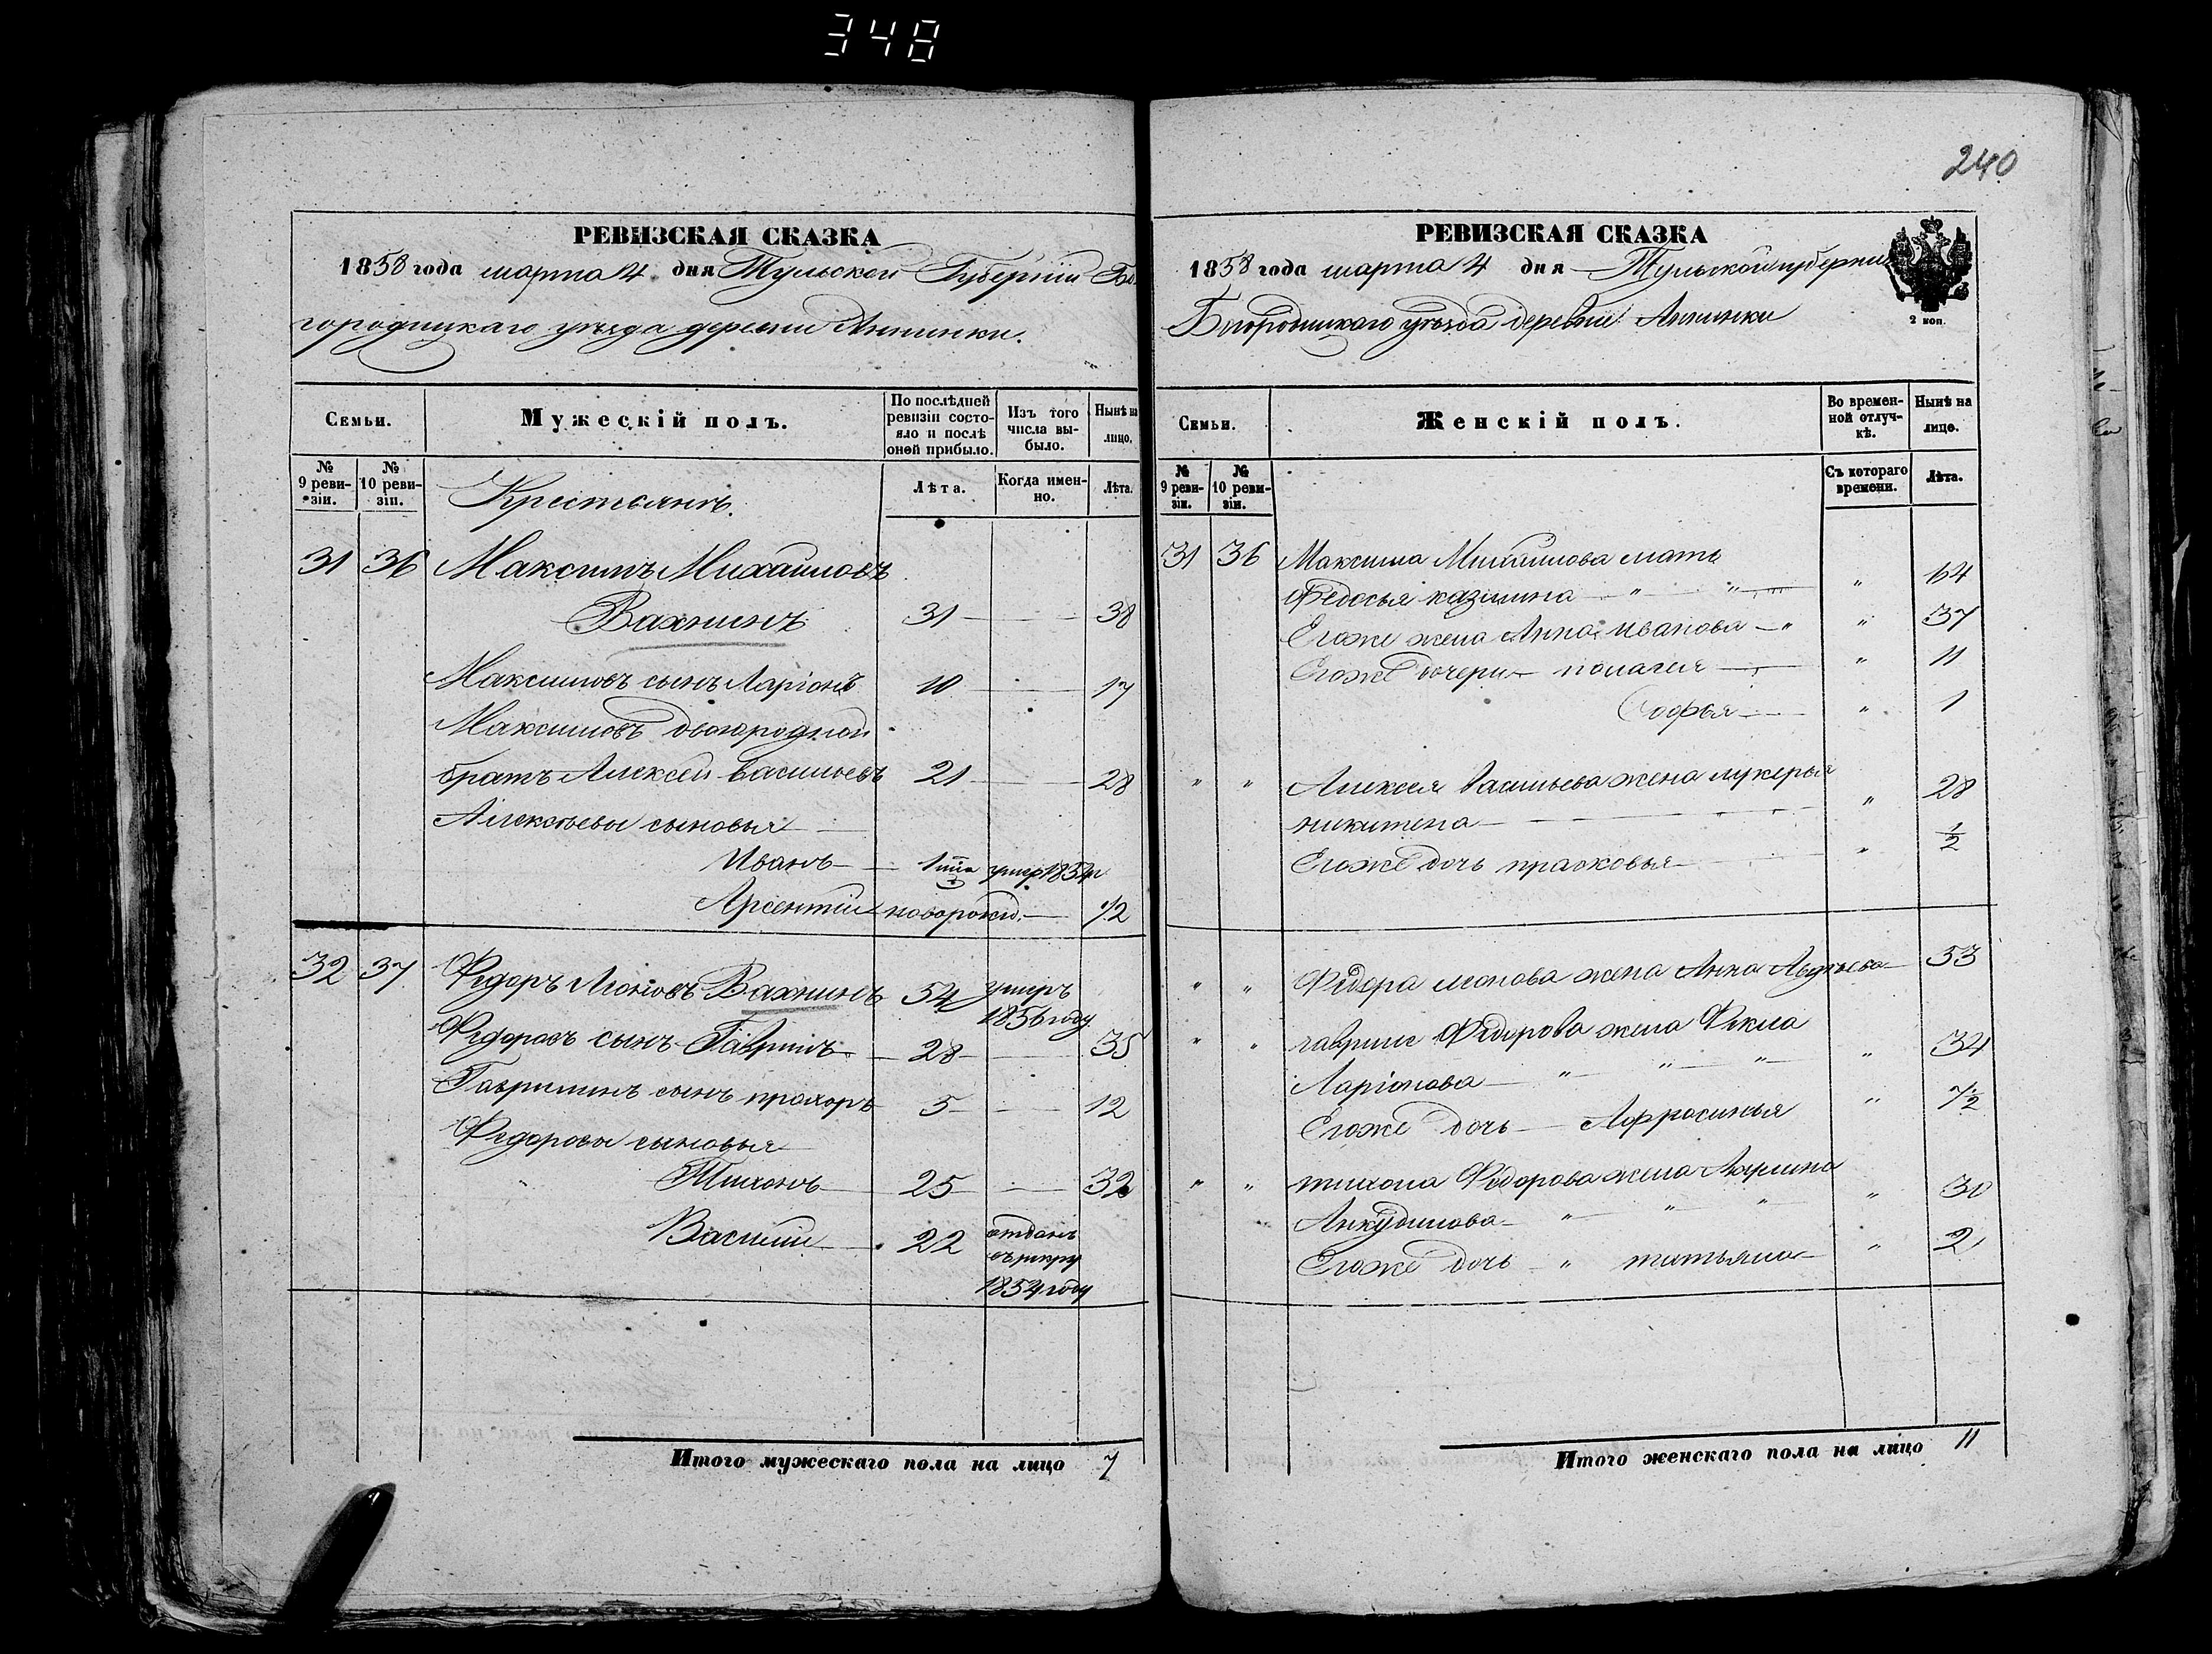 348
240
РЕВИЗСКАЯ СКАЗКА
1858 года марта 4 дня Тульской Губерніи Бо
городицкаго уѣзда деревни Аннинки.
Семьи.
Мужескій полъ.
По послѣдней ревизіи состояло и послѣ оной прибыло.
Изъ того числа выбыло.
Нынѣ на лицо.
№ 9 ревизіи.
№ 10 ревизіи.
Крестьянъ.
Лѣта.
Когда именно.
Лѣта.
31 36 Максимъ Михайловъ
Вахнинъ 31 — 38
Максимовъ сынъ Ларіонъ 10 — 17
Максимовъ двоюродной
братъ Алексей васильевъ 21 — 28
Алексѣевы сыновья
Иванъ — умер 1854 г
Арсентій новорожд. — 1/2
32 37 Федоръ Леоновъ Вахнинъ 54 умеръ
1856 году
Федоровъ сынъ Гаврилъ — 28 — 35
Гаврилинъ сынъ прохоръ 5 — 12
Федоровы сыновья
Тихонъ 25 — 32
Василій 22 отданъ
въ рекру
1854 году
Итого мужескаго пола на лицо 7
РЕВИЗСКАЯ СКАЗКА
1858 года марта 4 дня Тульской губерніи
Богородицкаго уѣзда деревни Аннинки
2 коп.
Семьи.
Женскій полъ.
Во временной отлучкѣ.
Нынѣ на лицо.
№ 9 ревизіи.
№ 10 ревизіи.
Съ котораго времени.
Лѣта.
31 36 Максима Михайлова мать
Федосья казмина " " " 64
Егоже жена Анна Иванова — " " 37
Егоже дочери — пелагея — " 11
Софья — " 1
" " Алексея Васильева жена лукерья
никитена — " 28
Егоже дочь прасковья — " 1/2
" " Федора леонова жена Анна Авдѣева — 53
" " гаврилы Федорова жена Фекла
Ларіонова — " " " " 34
Егоже дочь — Афросинья " 1/2
" " тихона Федорова жена Марина
Анкудинова — " " " " 30
Егоже дочь — " татьяна — " 2
Итого женскаго пола на лицо 11